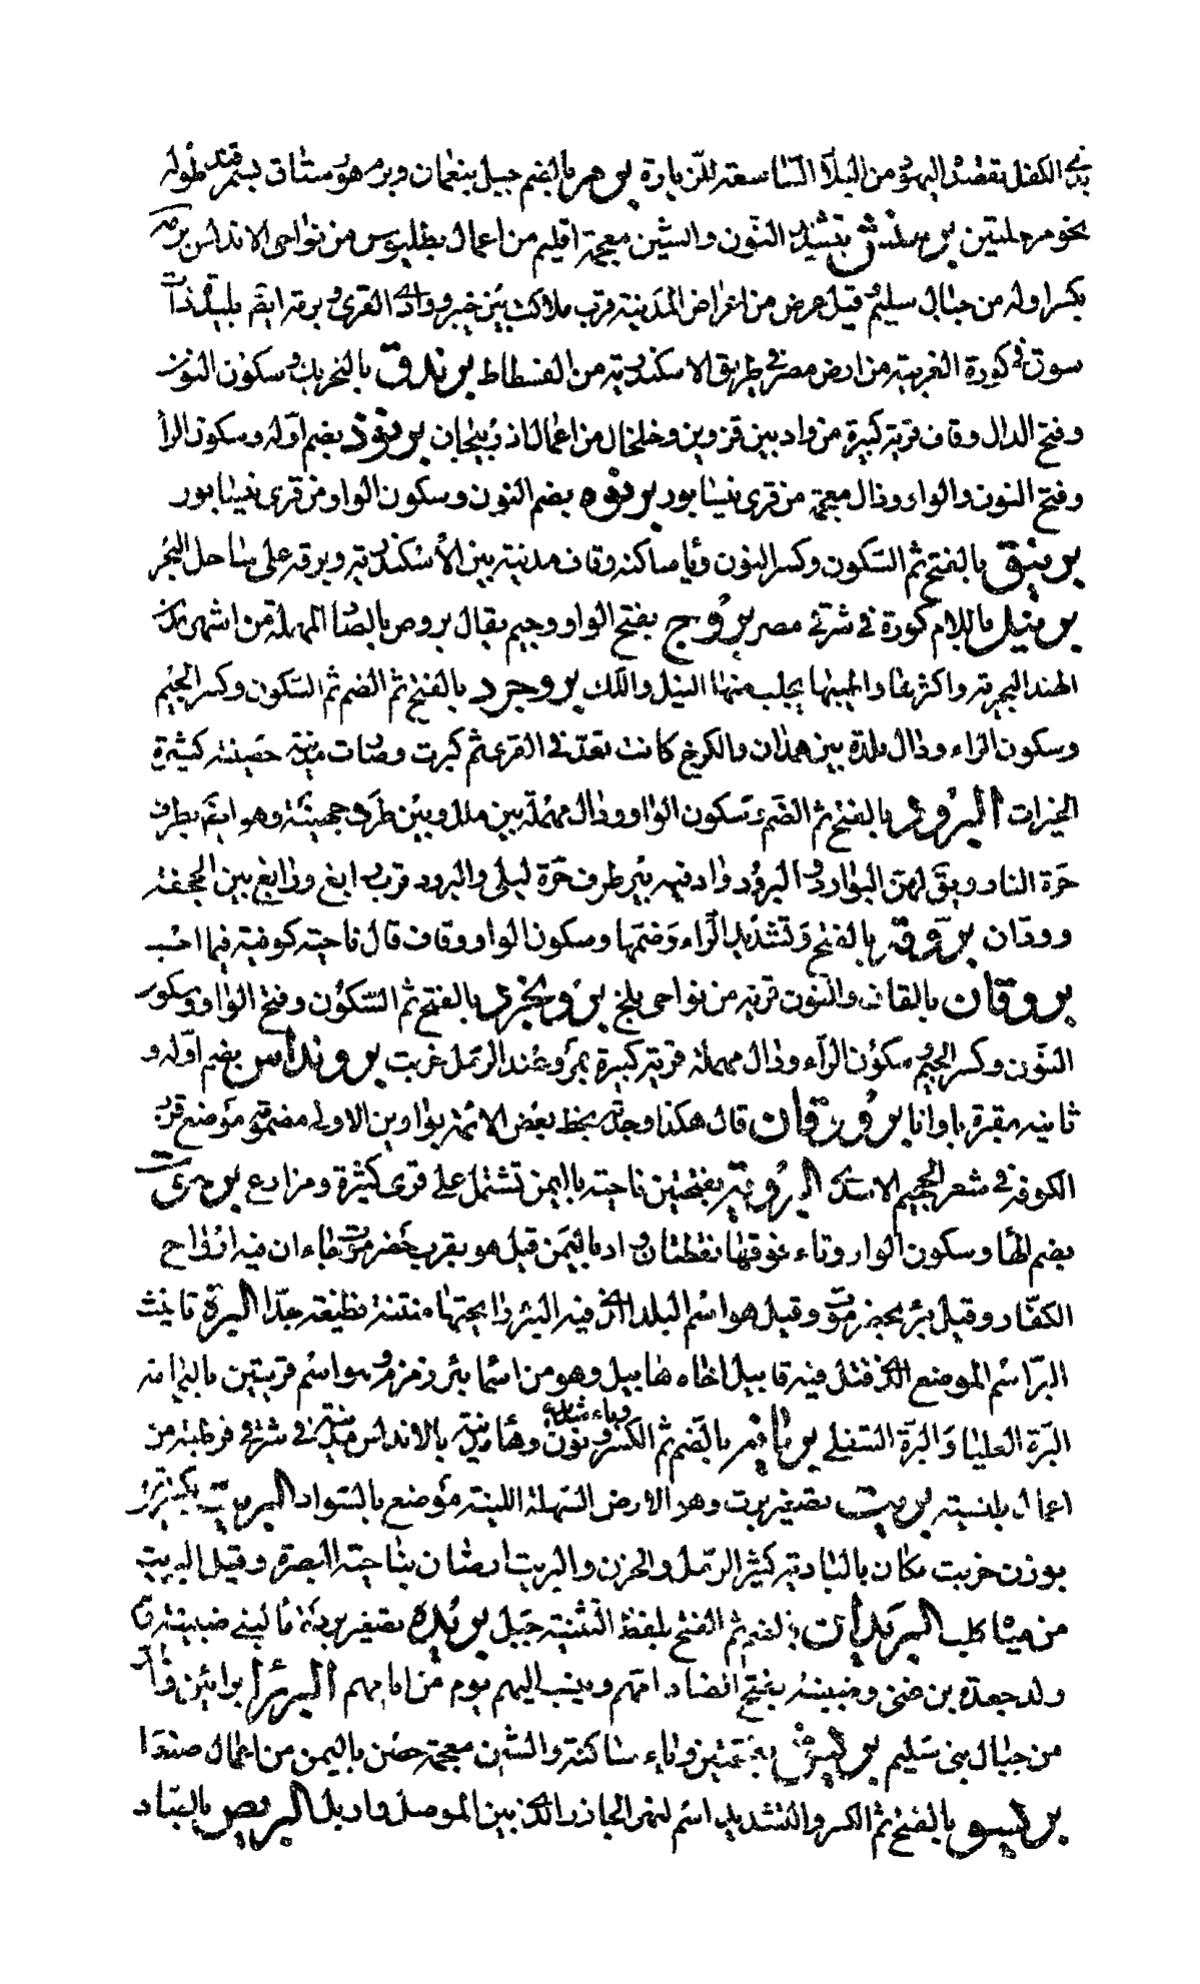 الكفل تقصده اليهود من البلاد الشاسعة للزيارة برم بالضم جبل بنعمان وبرم هو رستاق بسمرقند طوله
نحو مرحلتين برمنش بتشديد النون والشين معجمة اقليم من اعمال بطليوس من نواحي الاندلس برمة
بكسر اوله من جبال سليم وقيل عرض من اعراض المدينة قرب بلاكث بين خيبر ووادي القرى وبرمة ايضا بليدة ذات
سوق في كورة الغربية من ارض مصر في طريق الاسكندرية من الفسطاط برندق بالتحريك وسكون النون
وفتح الدال وقاف قرية كبيرة من واد بين قزوين وخلخال من اعمال اذربيجان برنوذ بضم اوله وسكون الرا
وفتح النون والواو وذال معجمة من قرى نيسابور برنوه بضم النون وسكون الواو من قرى نيسابور
برنيق بالفتح ثم السكون وكسر النون ويا ساكنه وقاف مدينة بين الاسكندرية وبرقة على ساحل البحر
برنيل باللام كورة في شرقي مصر بروج بفتح الواو وجيم يقال بروص بالصاد المهملة من اشهر مدن
الهند البحرية واكثرها واطيبها يجلب منها النيل واللك بروجرد بالفتح ثم الضم ثم السكون وكسر الجيم
وسكون الراء ودال بلدة بين همذان والكرج كانت تعد في القرى ثم كبرت وصارت مدينة حصينة كثيرة
الخيرات البرود بالفتح ثم الضم وسكون الواو ودال مهملة بين ملل وبين طرف جهينة وهو ايضا بطرف
حرة النار ويق لهن البوارد والبرود واد فيه بئر طرف حرة ليلى والبرود قرب رابغ ورابغ بين الجحفة
وودان بروقة بالفتح وتشديد الراء وضمها وسكون الواو وقاف قال ناحية كوفية فيما احسب
بروقان بالقاف والنون قرية من نواحي بلخ برونجرد بالفتح ثم السكون وفتح الواو وسكون
النون وكسر الجيم وسكون الراء ودال مهملة قرية كبيرة بمرو عند الرمل خربت برونداس بضم اوله و
ثانيه مقبرة باوانا بروورقان قال هكذا وجدته بخط بعض الائمة بواوين الاولى مضمومة موضع قرب
الكوفة في شعر الجحيم الاسدي البروية بفتحتين ناحية باليمن تشتمل على قرى كثيرة ومزارع برهوت
بضم الها وسكون الواو وتاء فوقها نقطتان واد باليمن قيل هو بقرب حضرموت جاء ان فيه ارواح
الكفار وقيل بئر بحضرموت وقيل هو اسم البلد الذي فيه البئر رائحتها منتنة فظيعة جدا البرة تانيث
البر اسم الموضع الذي قتل فيه قابيل اخاه هابيل وهو من اسما بئر زمزم وهو اسم قريتين باليمامة
البرة العليا والبرة السفلى بريانة بالضم ثم الكسر وياء شديدة ونون وها مدينة بالاندلس في شرقي قرطبة من
اعمال بلنسية بريت تصغير برت وهو الارض السهلة اللينة موضع بالسواد البريت بكسرتين
بوزن خريت مكان بالبادية كثير الرمل والحزن والبريت ارضان بناحية البصرة وقيل البريت
من مياه كلب البريدان بالضم ثم الفتح بلفظ التثنية جبل بريدة تصغير بردة ما لبني ضبينة وهم
ولد جعدة بن غني وضبينة بفتح الضاد امهم وينسب اليهم يوم من ايامهم البريرا برائين واد
من جبال بني سليم بريش بضمتين وياء ساكنة والشين معجمة حصن باليمن من اعمال صنعا
بريسو بالفتح ثم الكسر والتشديد اسم لنهر الجازر الذي بين الموصل واربل البريص بالصاد